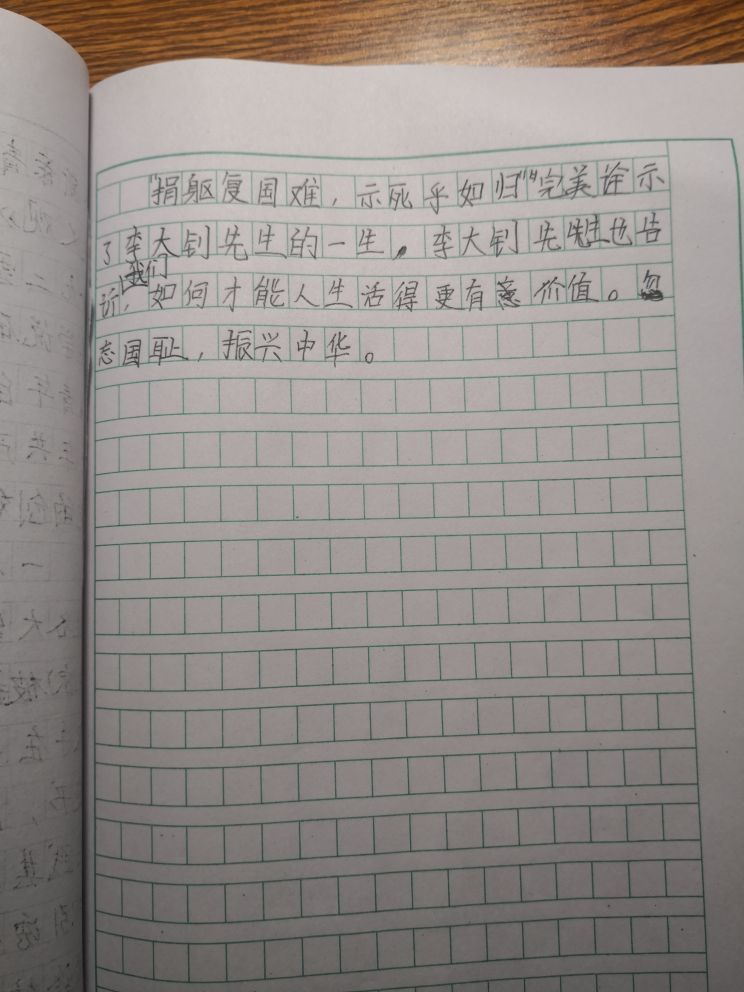 “捐躯复国难，示死乎如归”完美诠示
了李大钊先生的一生。李大钊先生也告
诉我们，如何才能人生活得更有价值。
忘国耻，振兴中华。